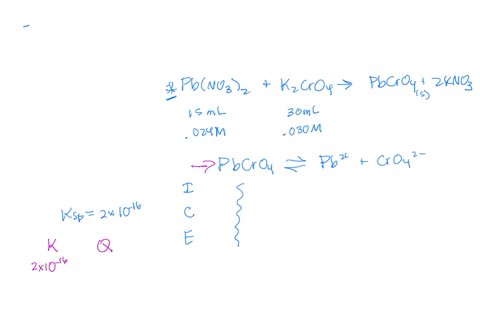 * Pb(NO₃)₂ + K₂CrO₄ → PbCrO₄(s) + 2KNO₃
15mL 30mL
.024M .030M
→ PbCrO₄ ⇌ Pb²⁺ + CrO₄²⁻
I
Ksp = 2×10⁻¹⁶ C
K Q E
2×10⁻¹⁶